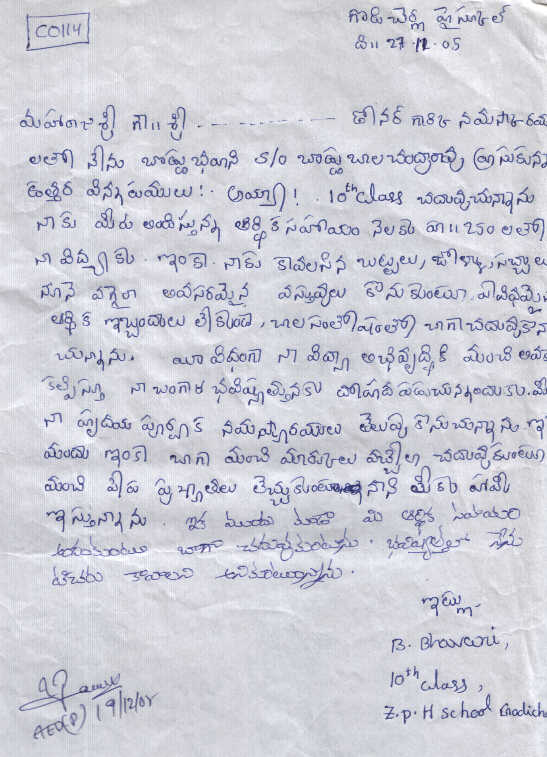 CO114
గాదిచెర్ల హైస్కూల్
ది॥ 27-12-05
మహారాజశ్రీ గౌ॥ శ్రీ - - - - - - - - - డోనర్ గారికి నమస్కారము
లతో నేను బొడ్డు భవాని S/o బొడ్డు బాలచంద్రరావు వ్రాసుకున్న
ఉత్తర విన్నపములు! అయ్యా! 10th class చదువుచున్నాను
నాకు మీరు అందిస్తున్న ఆర్థిక సహాయం నెలకు రూ॥ 250 లతో
నా విద్యకు ఇంకా నాకు కావలసిన బట్టలు, జోళ్ళు, సబ్బులు
నూనె వగైరా అవసరమైన వస్తువులు కొనుకుంటూ, ఏవిధమైన
ఆర్థిక ఇబ్బందులు లేకుండా, చాల సంతోషంతో బాగా చదువుకొను
చున్నాను. యీ విధంగా నా విద్యాభివృద్ధికి మంచి అవకా
కల్పిస్తూ నా బంగారు భవిష్యత్తునకు దోహద పడుచున్నందుకు. మీ
నా హృదయ పూర్వక నమస్కారములు తెలుపు కొనుచున్నాను. ఇక
ముందు ఇంకా బాగా మంచి మార్కులు వచ్చేలా చదువుకుంటూ
మంచి పేరు ప్రఖ్యాతులు తెచ్చుకుంటానని మీకు హామీ
ఇస్తున్నాను. ఇక ముందు కూడా మీ ఆర్థిక సహాయం
అందుకుంటూ బాగా చదువుకుంటాను. భవిష్యత్తులో నేను
టీచరు కావాలని అనుకొంటున్నాను.
ఇట్లు
B. Bhavani,
10th class,
Z.P.H School
AEO(P) 19/12/05